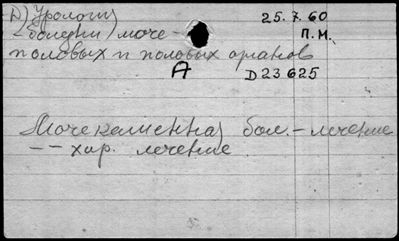 D) Урология 25.7.60
- болезни моче - П.М.
половых и половых органов
А D23625
Мочекаменная бол. - лечение
-- хир. лечение